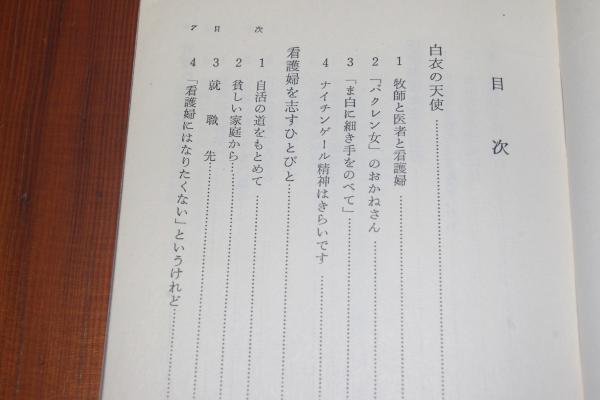 目次
白衣の天使……………
1 牧師と医者と看護婦……………
2 「バクレン女」のおかねさん……………
3 「ま白に細き手をのべて」……………
4 ナイチンゲール精神はきらいです……………
看護婦を志すひとびと……………
1 自活の道をもとめて……………
2 貧しい家庭から……………
3 就職先……………
4 「看護婦にはなりたくない」というけれど……………
7 目次